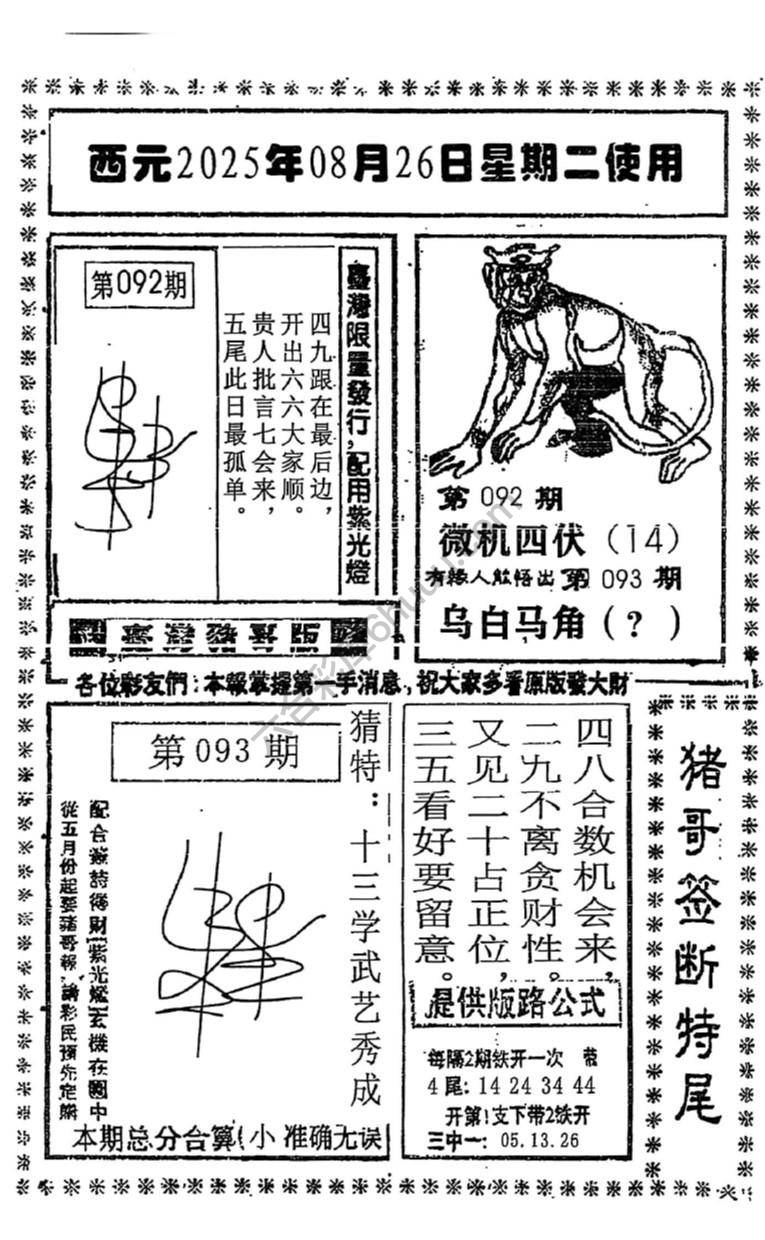 西元2025年08月26日星期二使用
第092期
臺灣限量發行,配用紫光燈
四九跟在最后边，
开出六六大家顺。
贵人批言七会来，
五尾此日最孤单。
臺灣豬哥版
第 092 期
微机四伏（14）
有緣人能悟出 第 093 期
乌白马角（?）
各位彩友們：本報掌握第一手消息，祝大家多看原版發大財
第093期
猜特：十三学武艺秀成
從五月份起要豬哥報，請彩民預先定購
本期总分合算(小 准确无误
四八合数机会来，
二九不离贪财性。
又见二十占正位，
三五看好要留意。
提供版路公式
每隔2期铁开一次 带
4尾: 14 24 34 44
开第1支下带2铁开
三中一: 05.13.26
猪哥签断特尾